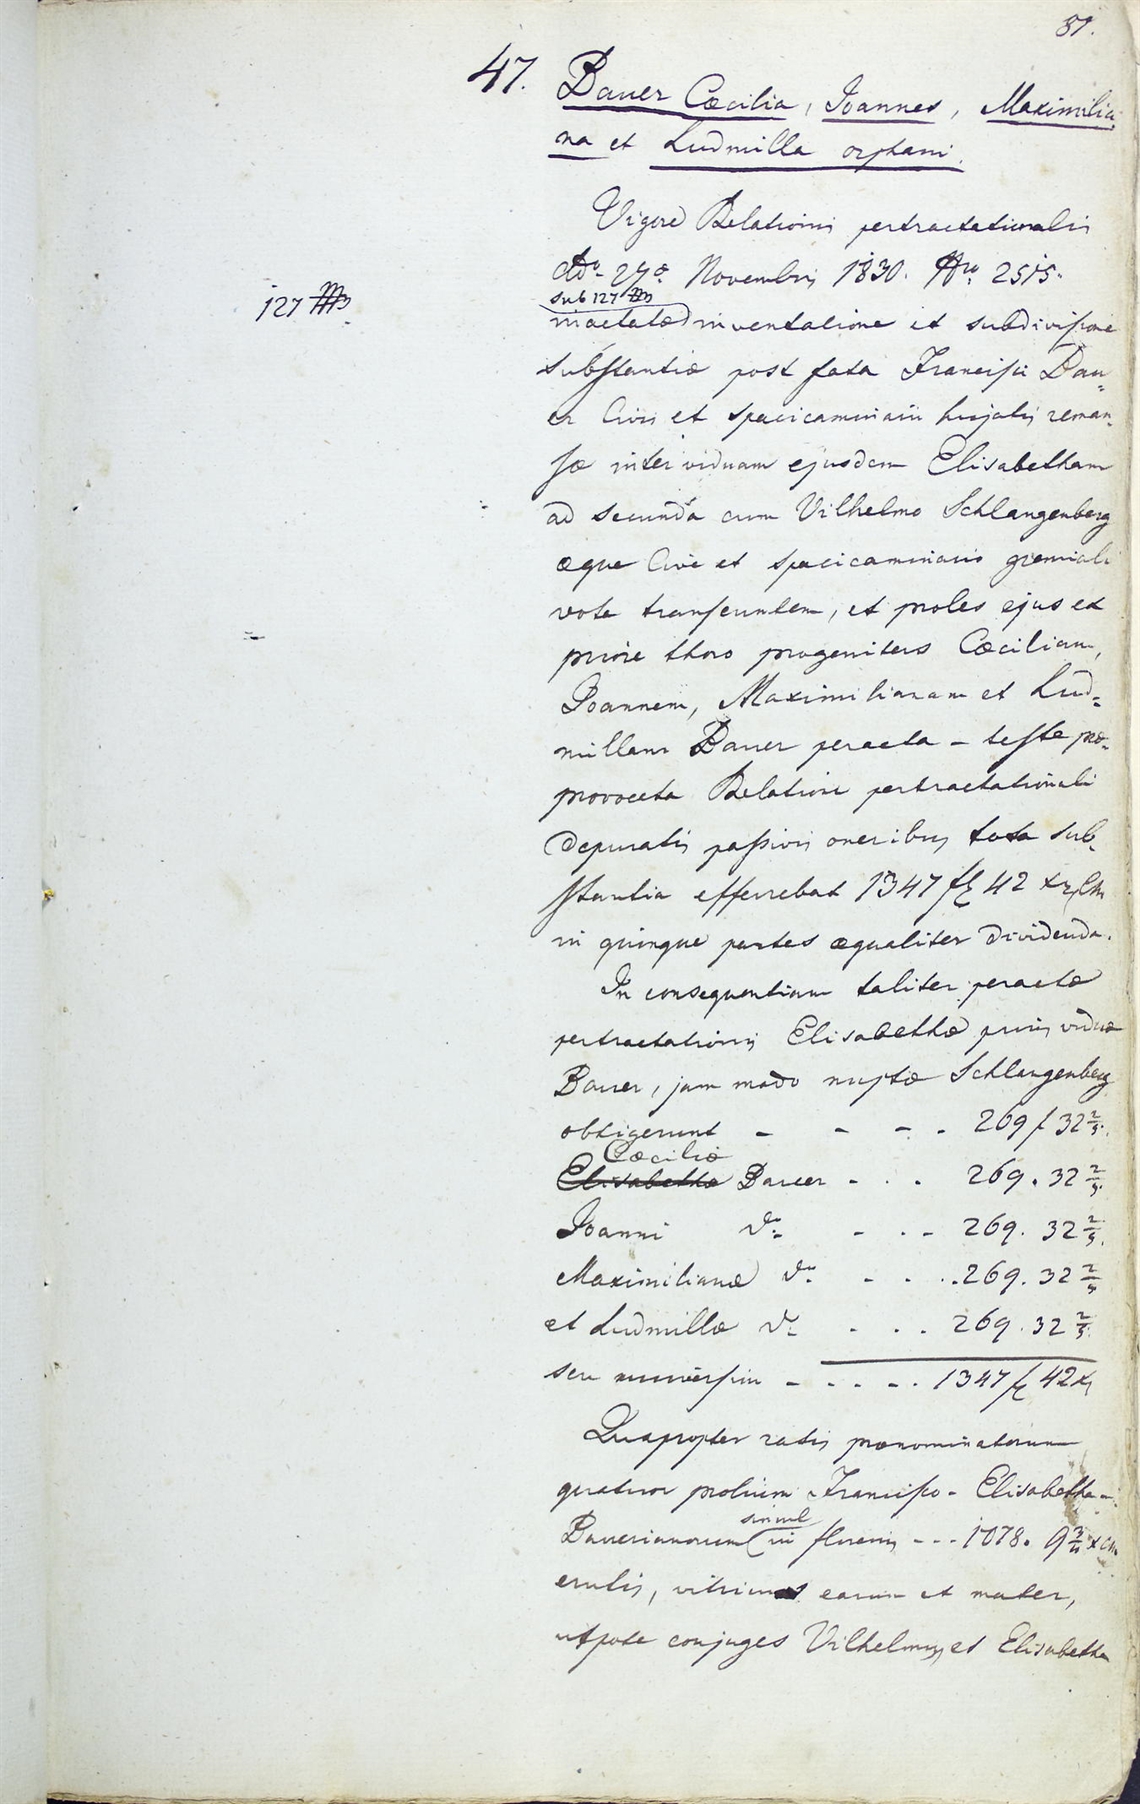 87.
47. Bauer Cæcilia, Joannes, Maximilia-
na et Ludmilla orphani.
Vigore Relationis pertractationalis
ddo. 27æ Novembris 1830. Nro. 2515.
sub 127
127
inactatæ inventatione et subdivisione
substantiæ post fata Francisci Bau-
er Civis et spacicaminarii hujatis reman-
sæ inter viduam ejusdem Elisabetham
ad secunda cum Vilhelmo Schlangenberg
æque Cive et spacicaminario gremiali
vota transeuntem, et proles ejus ex
priore thoro progenitas Cæciliam,
Joannem, Maximilianam et Lud-
millam Bauer peracta – teste præ-
provocata Relatione pertractationali
depuratis passivis oneribus tota sub-
stantia efferebat 1347 f 42 xr CM
in quinque partes æqualiter dividenda.
In consequentiam taliter peractæ
pertractationis Elisabethæ prius viduæ
Bauer, jam modo nuptæ Schlangenberg
obtigerunt - - - - 269 f 32 2/5.
Cæciliæ
Elisabethæ Bauer - . . 269. 32 2/5.
Joanni do. - . . - 269. 32 2/5.
Maximilianæ do. - . . . 269. 32 2/5
et Ludmillæ do. . . . 269. 32 2/5.
seu universim - . - - . 1347 f 42 x
Quapropter ratis prænominatorum
quatuor prolium Francisco - Elisabetha -
simul
Bauerianorum in florenis - - - 1078. 9 3/5 x CM
erutis, vitricus earum et mater,
utpote conjuges Vilhelmus et Elisabetha